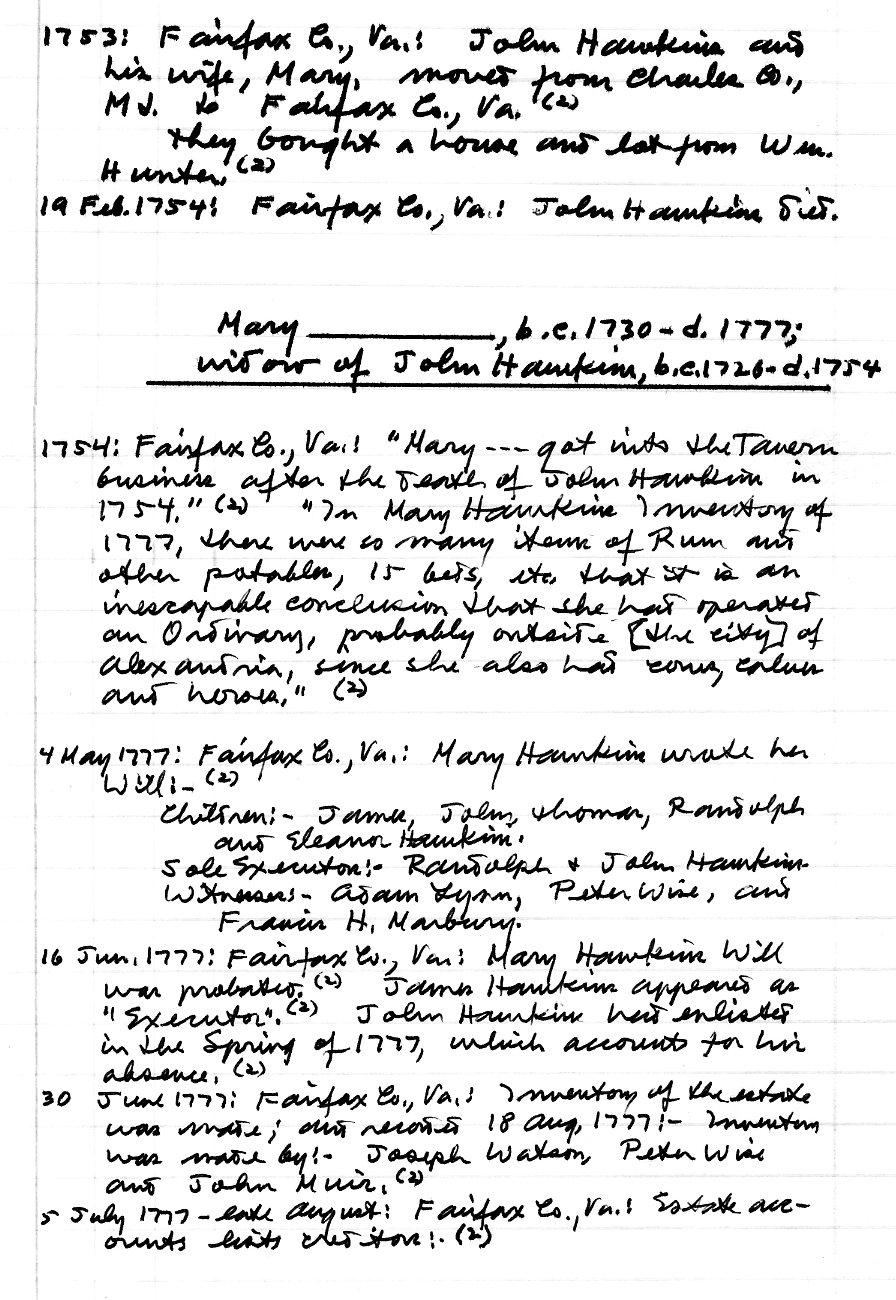 1753: Fairfax Co., Va.: John Hawkins and
his wife, Mary, moved from Charles Co.,
Md. to Fairfax Co., Va. (2)
They bought a house and lot from Wm.
Hunter. (2)
19 Feb. 1754: Fairfax Co., Va.: John Hawkins died.
Mary ____________, b.c. 1730 - d. 1777;
widow of John Hawkins, b.c. 1726 - d. 1754
1754: Fairfax Co., Va.: "Mary --- got into the Tavern
business after the death of John Hawkins in
1754." (2) "In Mary Hawkins Inventory of
1777, there were so many items of Rum and
other potables, 15 beds, etc. that it is an
inescapable conclusion that she had operated
an Ordinary, probably outside [the city] of
Alexandria, since she also had cows, calves
and horses." (2)
4 May 1777: Fairfax Co., Va.: Mary Hawkins wrote her
Will:- (2)
Children:- James, John, Thomas, Randolph
and Eleanor Hawkins.
Sole Executor:- Randolph & John Hawkins
Witnesses:- Adam Lynn, Peter Wise, and
Francis H. Marbury.
16 Jun. 1777: Fairfax Co., Va.: Mary Hawkins Will
was probated. (2) James Hawkins appeared as
"Executor". (2) John Hawkins had enlisted
in the Spring of 1777, which accounts for his
absence. (2)
30 June 1777: Fairfax Co., Va.: Inventory of the estate
was made; and recorded 18 Aug. 1777:- Inventory
was made by:- Joseph Watson, Peter Wise
and John Muir. (2)
5 July 1777 - late August: Fairfax Co., Va.: Estate acc-
ounts lists creditors:- (2)